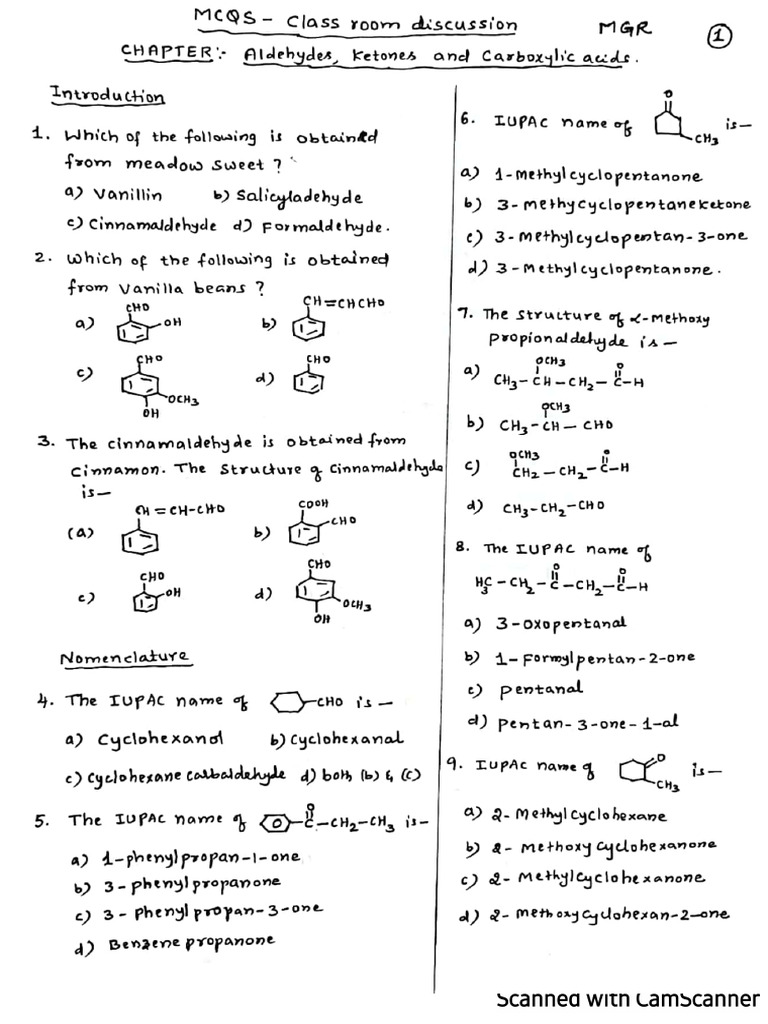 MCQS - Class room discussion MGR 1
CHAPTER:- Aldehydes, Ketones and Carboxylic acids.
Introduction
1. Which of the following is obtained
from meadow sweet ?
a) Vanillin b) Salicyladehyde
c) Cinnamaldehyde d) Formaldehyde.
2. Which of the following is obtained
from Vanilla beans ?
a) CHO OH b) CH=CHCHO
c) CHO OCH3 OH d) CHO
3. The cinnamaldehyde is obtained from
cinnamon. The structure of cinnamaldehyde
is—
(a) CH = CH-CHO b) COOH CHO
c) CHO OH d) CHO OCH3 OH
Nomenclature
4. The IUPAC name of -CHO is —
a) Cyclohexanol b) Cyclohexanal
c) Cyclohexane carbaldehyde d) both (b) & (c)
5. The IUPAC name of O -C-CH2-CH3 is-
a) 1-phenylpropan-1-one
b) 3-phenylpropanone
c) 3-Phenylpropan-3-one
d) Benzene propanone
6. IUPAC name of O CH3 is—
a) 1-Methylcyclopentanone
b) 3-methycyclopentaneketone
c) 3-Methylcyclopentan-3-one
d) 3-Methylcyclopentanone.
7. The structure of α-Methoxy
propionaldehyde is—
OCH3 O
a) CH3-CH-CH2-C-H
OCH3
b) CH3-CH-CHO
OCH3 O
c) CH2-CH2-C-H
d) CH3-CH2-CHO
8. The IUPAC name of
O O
H3C-CH2-C-CH2-C-H
a) 3-oxopentanal
b) 1-Formylpentan-2-one
c) pentanal
d) pentan-3-one-1-al
9. IUPAC name of O CH3 is—
a) 2-Methylcyclohexane
b) 2-Methoxycyclohexanone
c) 2-Methylcyclohexanone
d) 2-methoxycyclohexan-2-one
Scanned with CamScanner